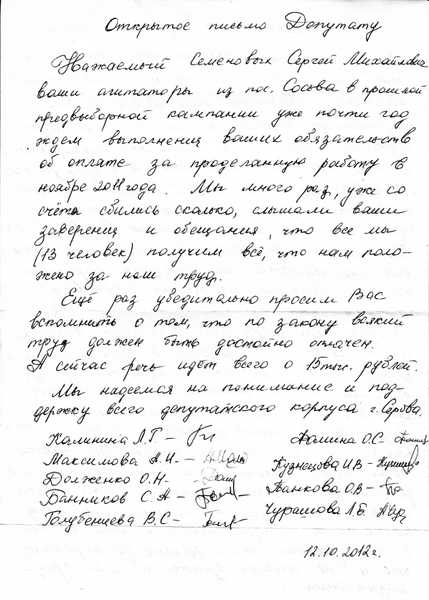 Открытое письмо Депутату
Уважаемый Семеновых Сергей Михайлович
ваши агитаторы из пос. Сосьва в прошлой
предвыборной кампании уже почти год
ждем выполнения ваших обязательств
об оплате за проделанную работу в
ноябре 2011 года. Мы много раз, уже со
счёта сбились сколько, слышали ваши
заверения и обещания, что все мы
(13 человек) получим всё, что нам поло-
жено за наш труд.
Ещё раз убедительно просим Вас
вспомнить о том, что по закону всякий
труд должен быть достойно оплачен.
А сейчас речь идёт всего о 15 тыс. рублей.
Мы надеемся на понимание и под-
держку всего депутатского корпуса г. Серова.
Калинина Л Г –
Максимова А.И. –
Долженко О.Н. –
Банников С А –
Голубенцева В.С –
Палина О.С.
Кузнецова И В –
Панкова О.В –
Чурашова Л.Б.
12.10.2012 г.